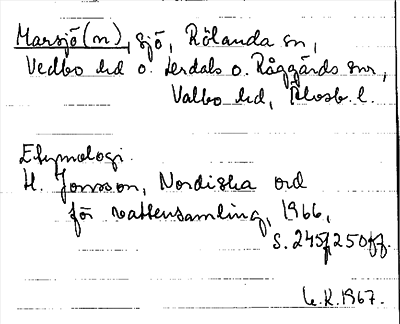 Marsjö(n), sjö, Rölanda sn,
Vedbo hd o. Lerdals o. Råggärds snr,
Valbo hd, Älvsb. l.
Etymologi.
H. Jonsson, Nordiska ord
för vattensamling, 1966,
s. 245f, 250ff.
L.K. 1967.